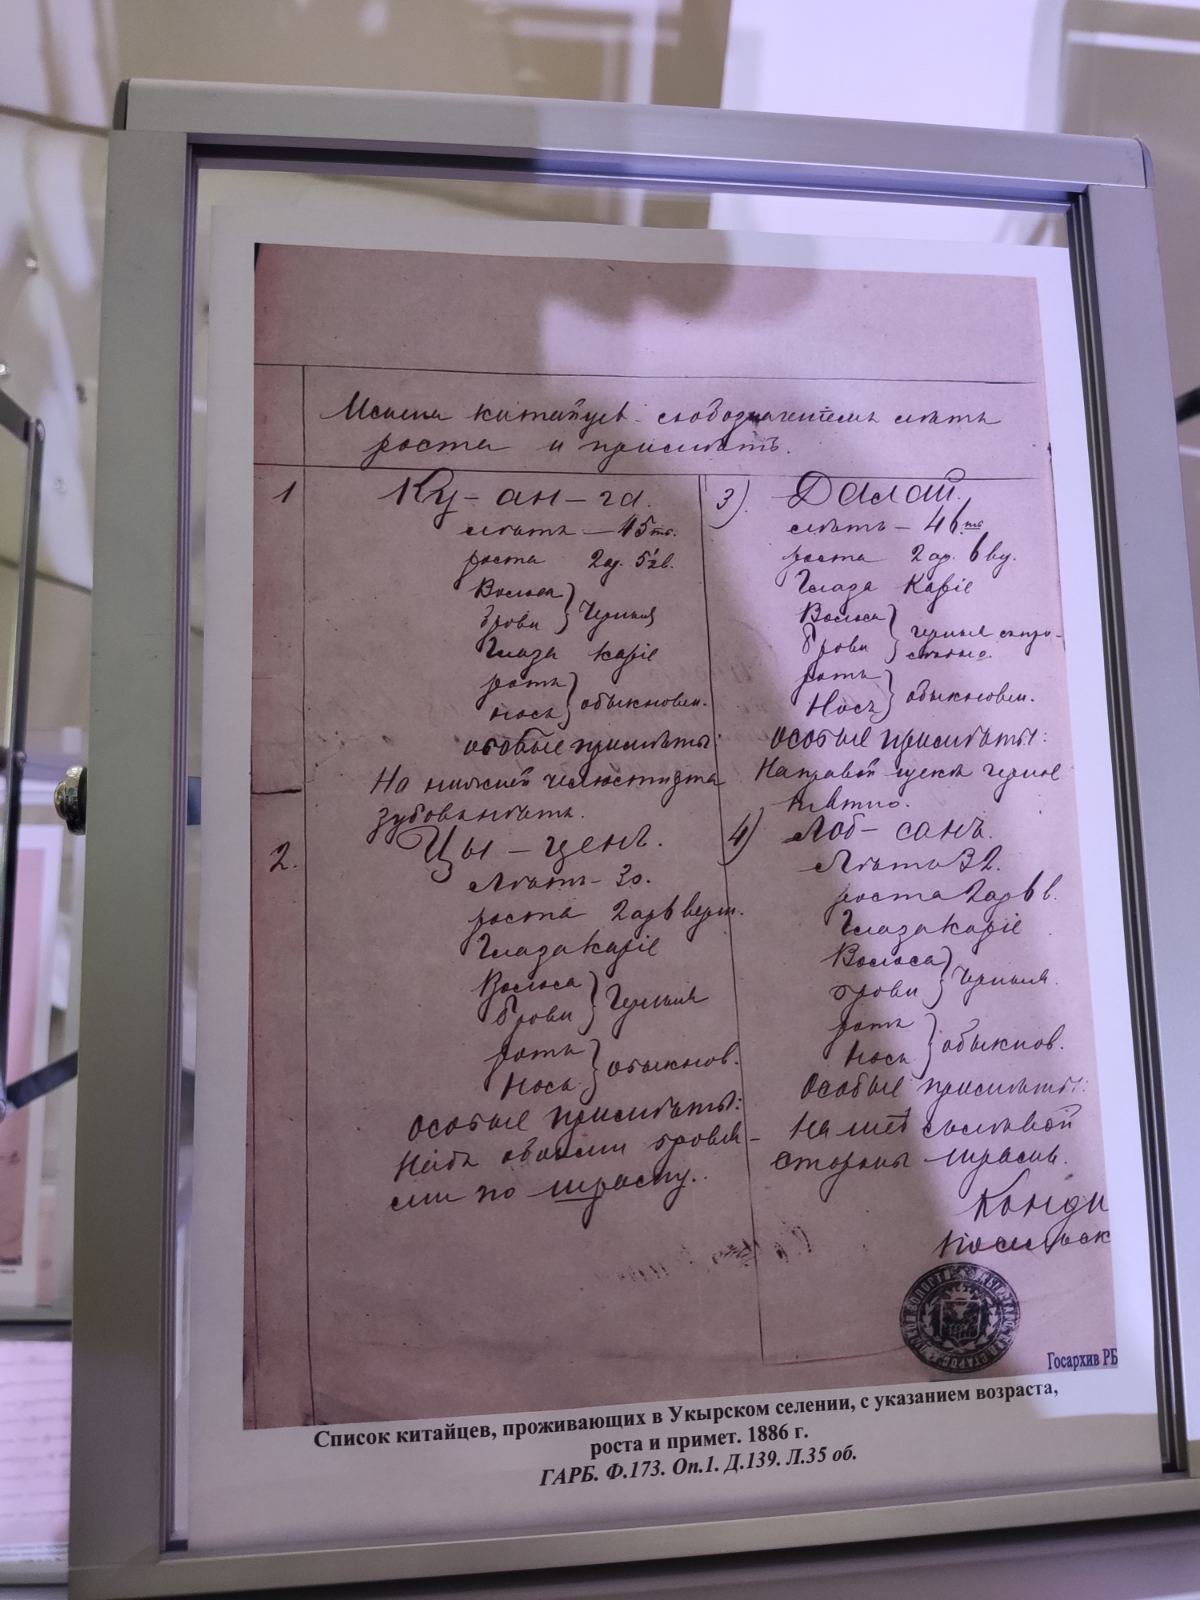 Имена китайцевъ съ обозначенiемъ лѣтъ
роста и примѣтъ.
1 Ку-ан-га.
лѣтъ — 45
роста 2 ар.
Волоса
брови } Черныя
Глаза карiе
ротъ
носъ } обыкновен.
особые примѣты:
На нижней челюсти
зубовъ нѣтъ.
2. Цы-ценъ.
Лѣтъ - 30.
роста 2 ар 6 верш.
Глаза карiе
Волоса
Брови } Черныя
ротъ
Носъ } обыкнов.
Особые примѣты:
Надъ обоими бровя-
ми по шраму.
3). Далай.
лѣтъ —
роста 2 ар. 6 ву.
Глаза Карiе
Волоса
Брови } черныя
ротъ
Носъ } обыкновен.
Особые примѣты:
На правой щекѣ черное
пятно.
4) Лоб-санъ.
Лѣтъ 32.
роста 2 ар 6 в.
Глаза карiе
Волоса
брови } Черныя.
ротъ
носъ } обыкнов.
Особые примѣты:
На шеѣ съ лѣвой
стороны шрамъ.
Госархив РБ
Список китайцев, проживающих в Укырском селении, с указанием возраста,
роста и примет. 1886 г.
ГАРБ. Ф.173. Оп.1. Д.139. Л.35 об.